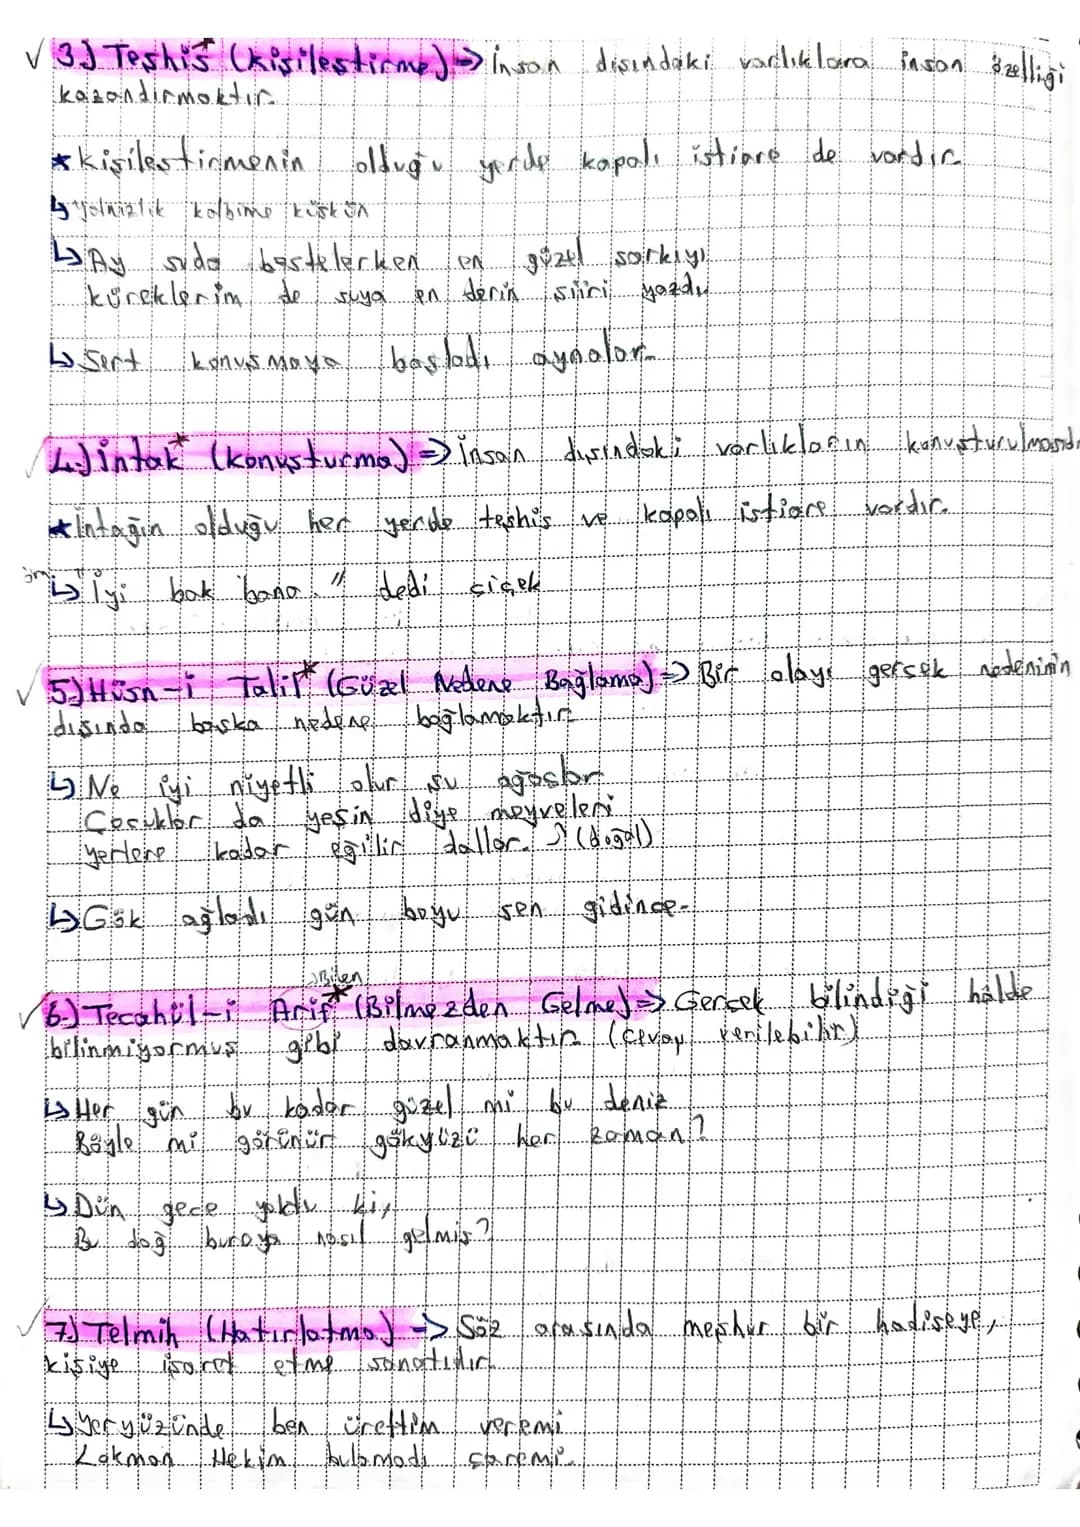 ✓ 3.) Teshis* (Kişileştirme) → İnsan dışındaki varlıklara insan özelliği
kazandırmaktır.
* Kişileştirmenin olduğu yerde kapalı istiare de vardır.
↳ Yalnızlık kalbime küskün
↳ Ay suda bestelerken en güzel şarkıyı
küreklerim de suya en derin şiiri yazdı.
↳ Sert konuşmaya başladı aynalar.
✓ 4.) İntak* (konuşturma) ⇒ İnsan dışındaki varlıkların konuşturulması
* İntağın olduğu her yerde teşhis ve kapalı istiare vardır.
ör ↳ "İyi bak bana." dedi çiçek
✓ 5) Hüsn-i Talil* (Güzel Nedene Bağlama) ⇒ Bir olayı gerçek nedeninin
dışında başka nedene bağlamaktır.
↳ Ne iyi niyetli olur şu ağaçlar
Çocuklar da yesin diye meyveleri
yerlere kadar eğilir dallar. (doğal)
↳ Gök ağladı gün boyu sen gidince.
Bilen
✓ 6.) Tecahül-i Arif* (Bilmezden Gelme) ⇒ Gerçek bilindiği hâlde
bilinmiyormuş gibi davranmaktır. (cevap verilebilir)
↳ Her gün bu kadar güzel mi bu deniz
Böyle mi görünür gökyüzü her zaman?
↳ Dün gece yoktu ki,
Bu dağ buraya nasıl gelmiş?
✓ 7) Telmih (Hatırlatma) → Söz arasında meşhur bir hadiseye,
kişiye işaret etme sanatıdır.
↳ Yeryüzünde ben ürettim veremi
Lokman Hekim bulamadı çaremi.